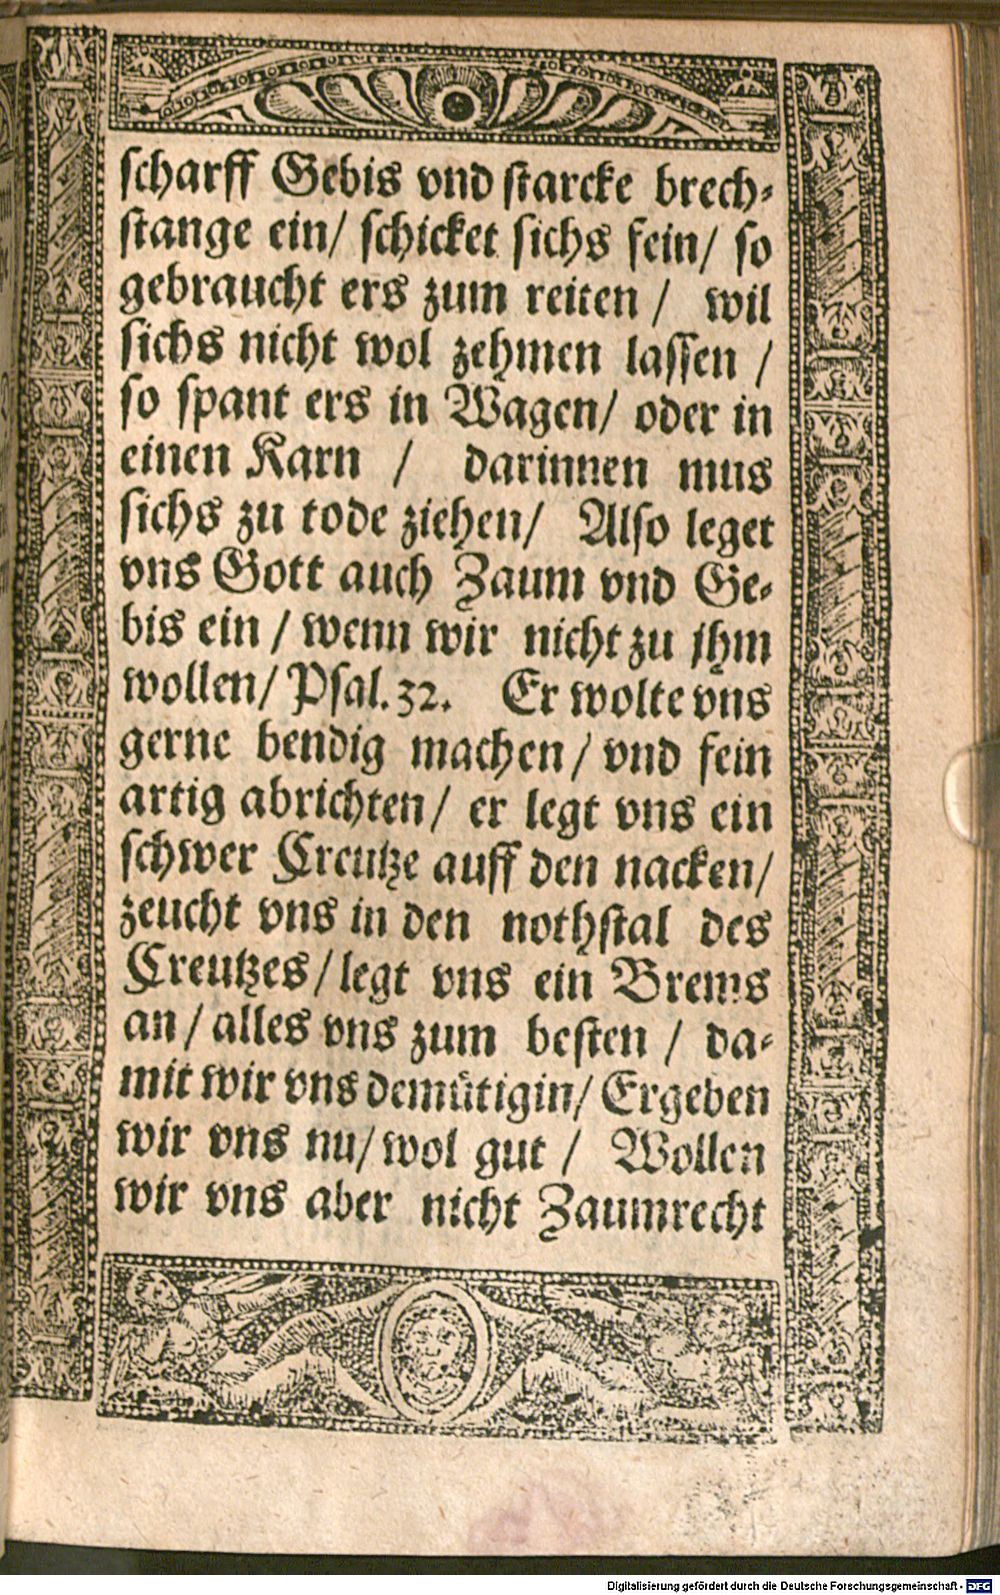 scharff Gebis vnd starcke brech-
stange ein/ schicket sichs fein/ so
gebraucht ers zum reiten / wil
sichs nicht wol zehmen lassen /
so spant ers in Wagen/ oder in
einen Karn / darinnen mus
sichs zu tode ziehen/ Also leget
vns Gott auch Zaum vnd Ge-
bis ein / wenn wir nicht zu jhm
wollen/ Psal. 32. Er wolte vns
gerne bendig machen / vnd fein
artig abrichten/ er legt vns ein
schwer Creutze auff den nacken/
zeucht vns in den nothstal des
Creutzes/ legt vns ein Brems
an / alles vns zum besten / da-
mit wir vns demütigin/ Ergeben
wir vns nu/ wol gut / Wollen
wir vns aber nicht Zaumrecht
Digitalisierung gefördert durch die Deutsche Forschungsgemeinschaft - DFG